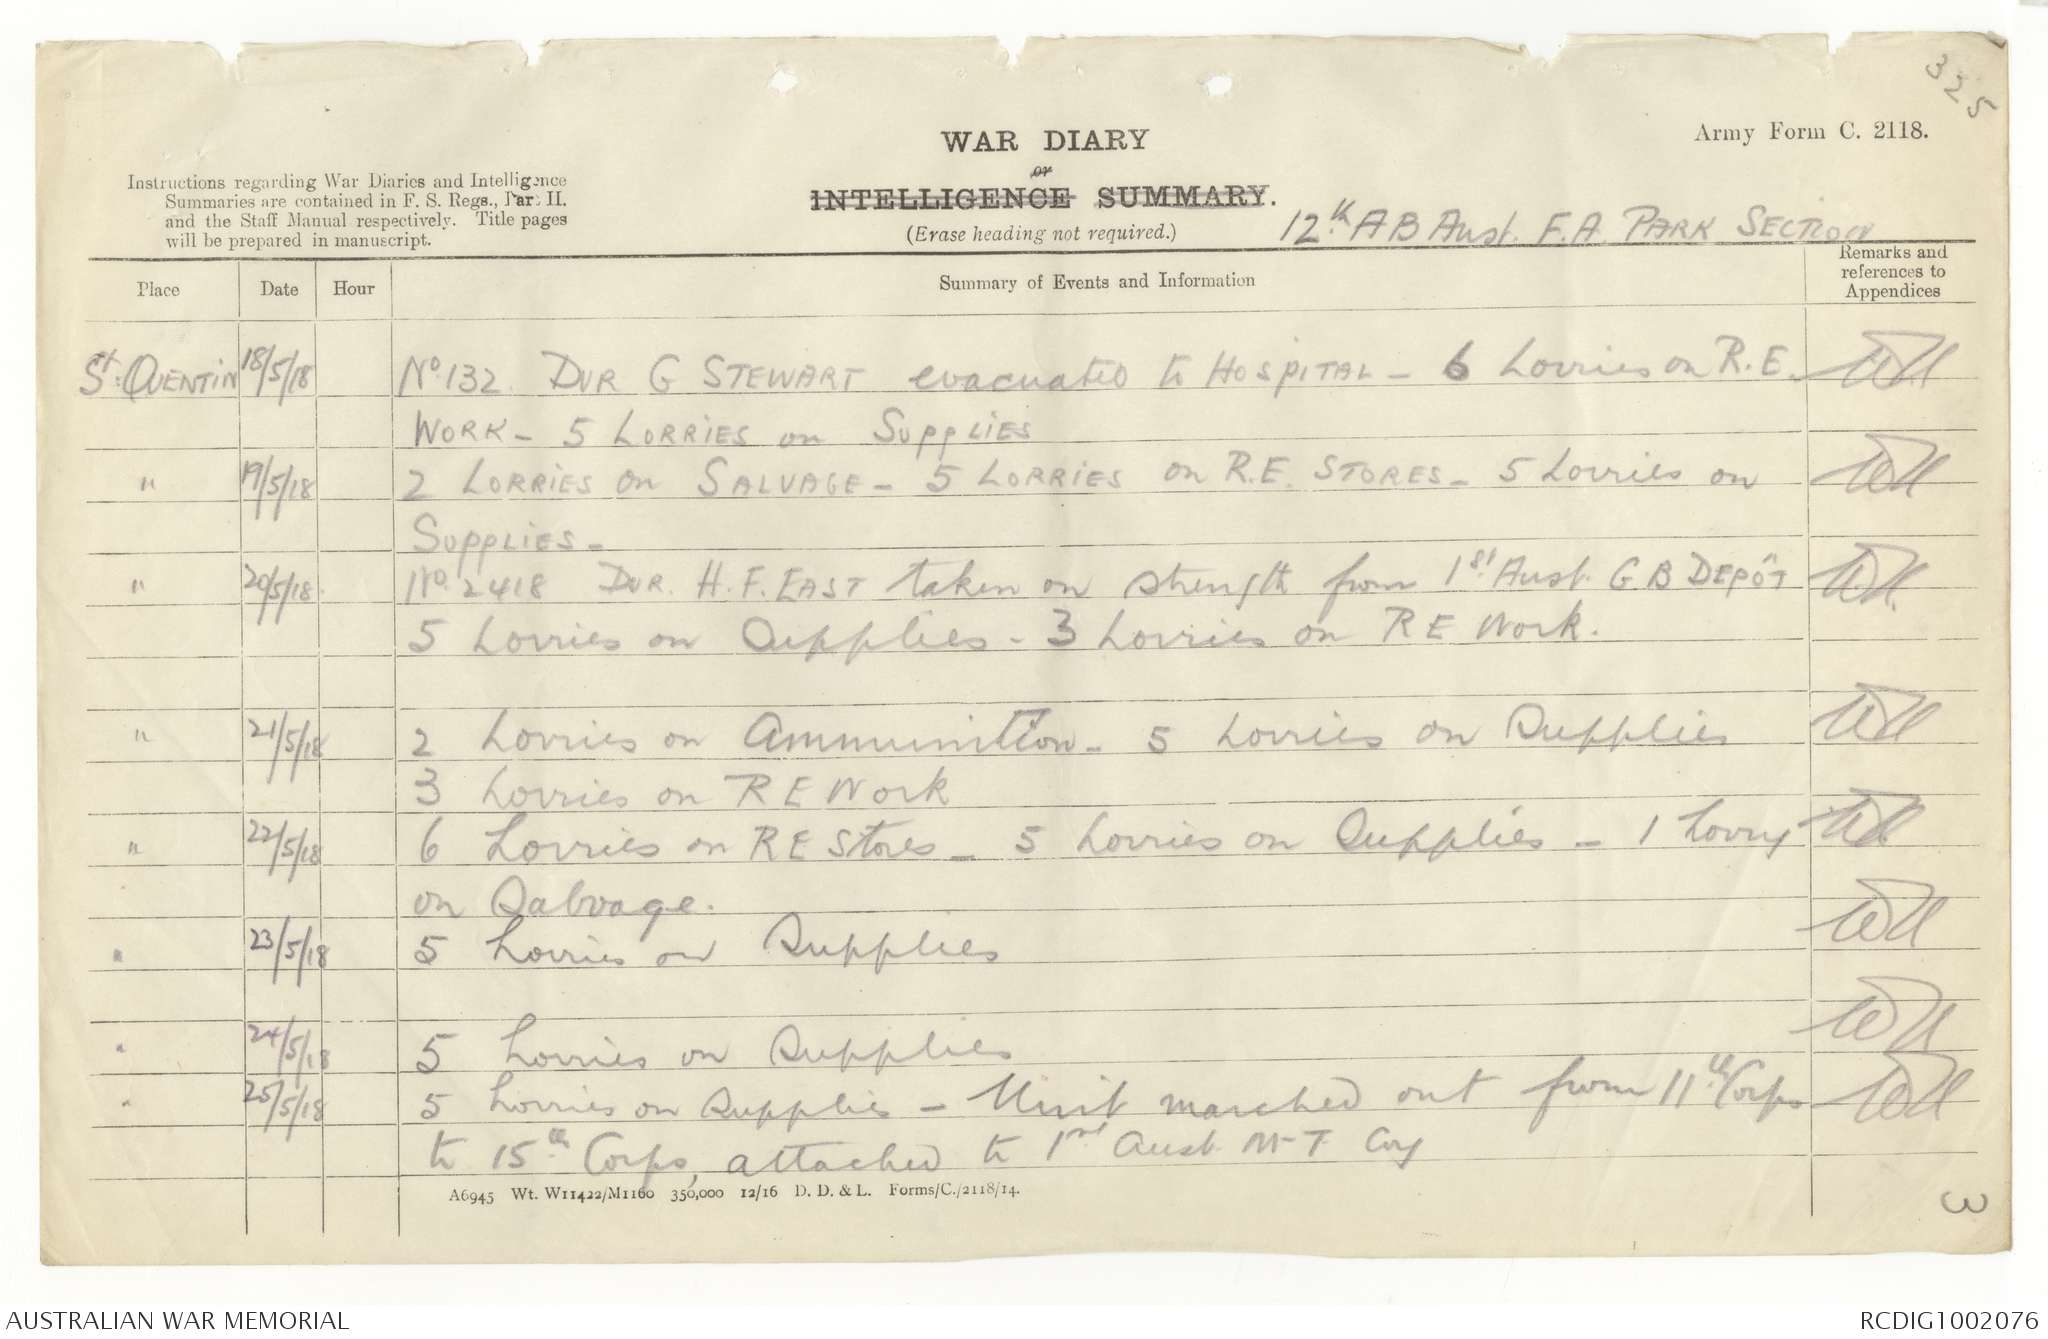 325
Army Form C. 2118.
WAR DIARY
or
INTELLIGENCE SUMMARY.
(Erase heading not required.)
Instructions regarding War Diaries and Intelligence
Summaries are contained in F. S. Regs., Part II.
and the Staff Manual respectively. Title pages
will be prepared in manuscript.
12th AB Aust. F.A. PARK SECTION
Place Date Hour Summary of Events and Information Remarks and references to Appendices
St. QUENTIN 18/5/18 No. 132. DVR G STEWART evacuated to HOSPITAL - 6 Lorries on R.E.
WORK - 5 LORRIES on SuppLIES
" 19/5/18 2 LORRIES on SALVAGE - 5 LORRIES on R.E. STORES - 5 Lorries on
SuppLIES -
" 20/5/18 No. 2418 DVR. H. F. EAST taken on strength from 1st Aust. G.B DEPÔT
5 Lorries on Supplies - 3 Lorries on R E Work.
" 21/5/18 2 Lorries on Ammunition - 5 Lorries on Supplies
3 Lorries on R E Work
" 22/5/18 6 Lorries on R E Stores - 5 Lorries on Supplies - 1 Lorry
on Salvage.
" 23/5/18 5 Lorries on Supplies
" 24/5/18 5 Lorries on Supplies
" 25/5/18 5 Lorries on Supplies - Unit marched out from 11th Corps
to 15th Corps, attached to 1st Aust M-T Coy
A6945 Wt. W11422/M1160 350,000 12/16 D. D. & L. Forms/C./2118/14.
3
AUSTRALIAN WAR MEMORIAL
RCDIG1002076